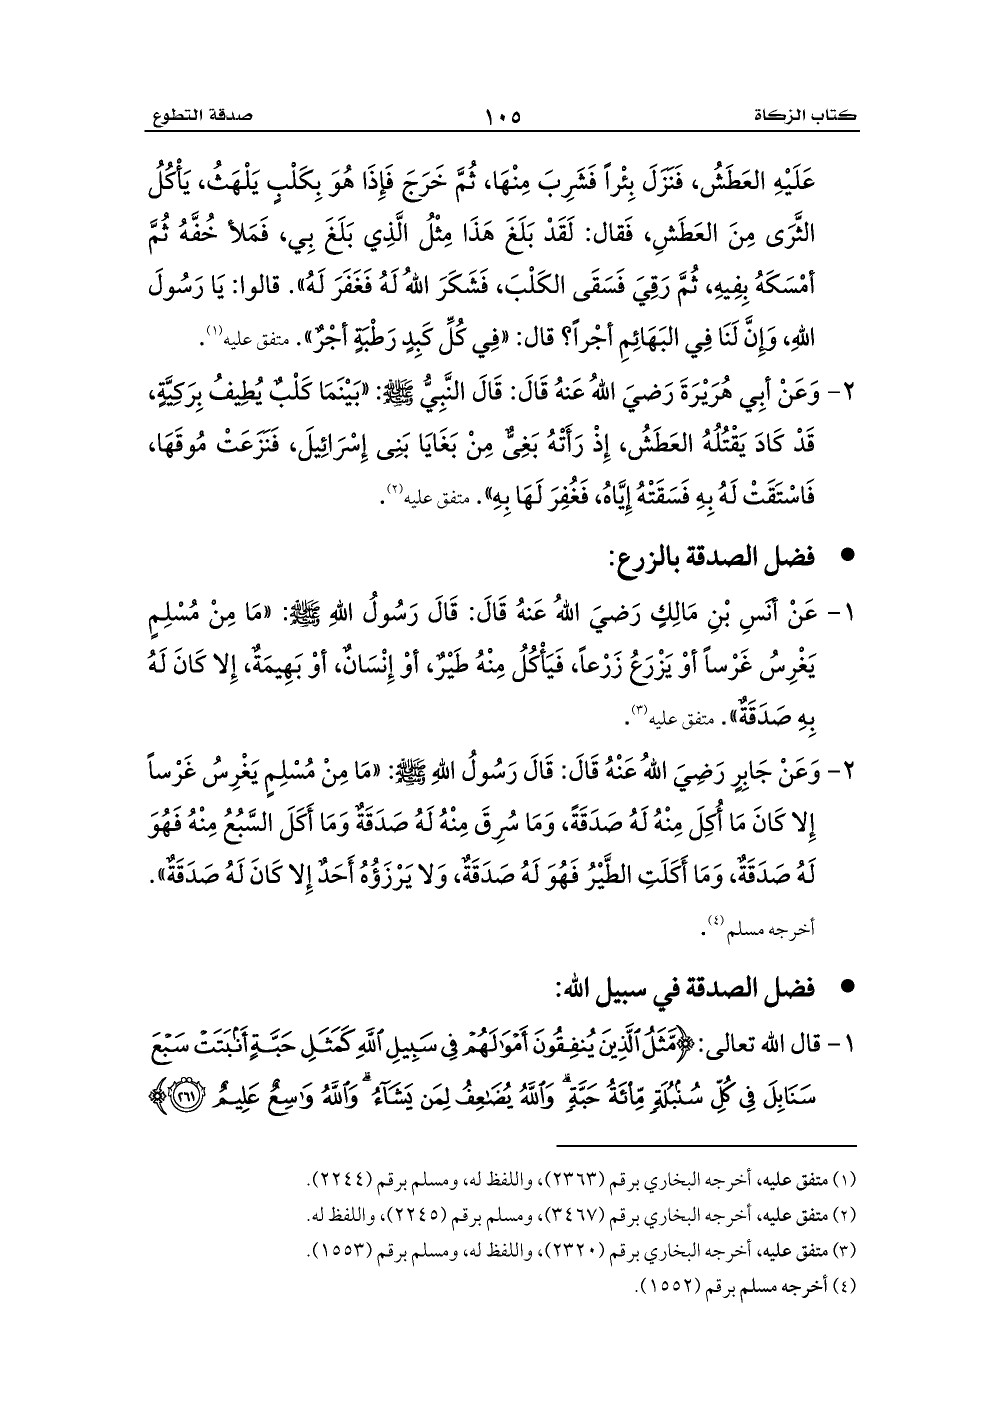 كتاب الزكاة ١٠٥ صدقة التطوع
عَلَيْهِ العَطَشُ، فَنَزَلَ بِئْراً فَشَرِبَ مِنْهَا، ثُمَّ خَرَجَ فَإِذَا هُوَ بِكَلْبٍ يَلْهَثُ، يَأْكُلُ
الثَّرَى مِنَ العَطَشِ، فَقال: لَقَدْ بَلَغَ هَذَا مِثْلُ الَّذِي بَلَغَ بِي، فَمَلأ خُفَّهُ ثُمَّ
أمْسَكَهُ بِفِيهِ، ثُمَّ رَقِيَ فَسَقَى الكَلْبَ، فَشَكَرَ اللهُ لَهُ فَغَفَرَ لَهُ». قالوا: يَا رَسُولَ
اللهِ، وَإِنَّ لَنَا فِي البَهَائِمِ أجْراً؟ قال: «فِي كُلِّ كَبِدٍ رَطْبَةٍ أجْرٌ». متفق عليه(١).
٢- وَعَنْ أبِي هُرَيْرَةَ رَضيَ اللهُ عَنهُ قَالَ: قَالَ النَّبِيُّ ﷺ: «بَيْنَمَا كَلْبٌ يُطِيفُ بِرَكِيَّةٍ،
قَدْ كَادَ يَقْتُلُهُ العَطَشُ، إِذْ رَأتْهُ بَغِيٌّ مِنْ بَغَايَا بَنِى إِسْرَائِيلَ، فَنَزَعَتْ مُوقَهَا،
فَاسْتَقَتْ لَهُ بِهِ فَسَقَتْهُ إِيَّاهُ، فَغُفِرَ لَهَا بِهِ». متفق عليه(٢).
● فضل الصدقة بالزرع:
١- عَنْ أنَسِ بْنِ مَالِكٍ رَضيَ اللهُ عَنهُ قَالَ: قَالَ رَسُولُ اللهِ ﷺ: «مَا مِنْ مُسْلِمٍ
يَغْرِسُ غَرْساً أوْ يَزْرَعُ زَرْعاً، فَيَأْكُلُ مِنْهُ طَيْرٌ، أوْ إِنْسَانٌ، أوْ بَهِيمَةٌ، إِلا كَانَ لَهُ
بِهِ صَدَقَةٌ». متفق عليه(٣).
٢- وَعَنْ جَابِرٍ رَضِيَ اللهُ عَنْهُ قَالَ: قَالَ رَسُولُ اللهِ ﷺ: «مَا مِنْ مُسْلِمٍ يَغْرِسُ غَرْساً
إِلا كَانَ مَا أُكِلَ مِنْهُ لَهُ صَدَقَةً، وَمَا سُرِقَ مِنْهُ لَهُ صَدَقَةٌ وَمَا أَكَلَ السَّبُعُ مِنْهُ فَهُوَ
لَهُ صَدَقَةٌ، وَمَا أَكَلَتِ الطَّيْرُ فَهُوَ لَهُ صَدَقَةٌ، وَلا يَرْزَؤُهُ أَحَدٌ إِلا كَانَ لَهُ صَدَقَةٌ».
أخرجه مسلم(٤).
● فضل الصدقة في سبيل الله:
١- قال الله تعالى: ﴿مَّثَلُ ٱلَّذِينَ يُنفِقُونَ أَمْوَٰلَهُمْ فِى سَبِيلِ ٱللَّهِ كَمَثَلِ حَبَّةٍ أَنۢبَتَتْ سَبْعَ
سَنَابِلَ فِى كُلِّ سُنۢبُلَةٍ مِّا۟ئَةُ حَبَّةٍ ۗ وَٱللَّهُ يُضَٰعِفُ لِمَن يَشَآءُ ۗ وَٱللَّهُ وَٰسِعٌ عَلِيمٌ ٢٦١﴾
(١) متفق عليه، أخرجه البخاري برقم (٢٣٦٣)، واللفظ له، ومسلم برقم (٢٢٤٤).
(٢) متفق عليه، أخرجه البخاري برقم (٣٤٦٧)، ومسلم برقم (٢٢٤٥)، واللفظ له.
(٣) متفق عليه، أخرجه البخاري برقم (٢٣٢٠)، واللفظ له، ومسلم برقم (١٥٥٣).
(٤) أخرجه مسلم برقم (١٥٥٢).